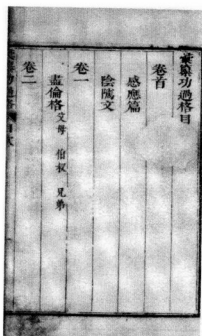 彙纂功過格目
卷首
感應篇
陰隲文
卷一
盡倫格 父母 伯叔 兄弟
卷二